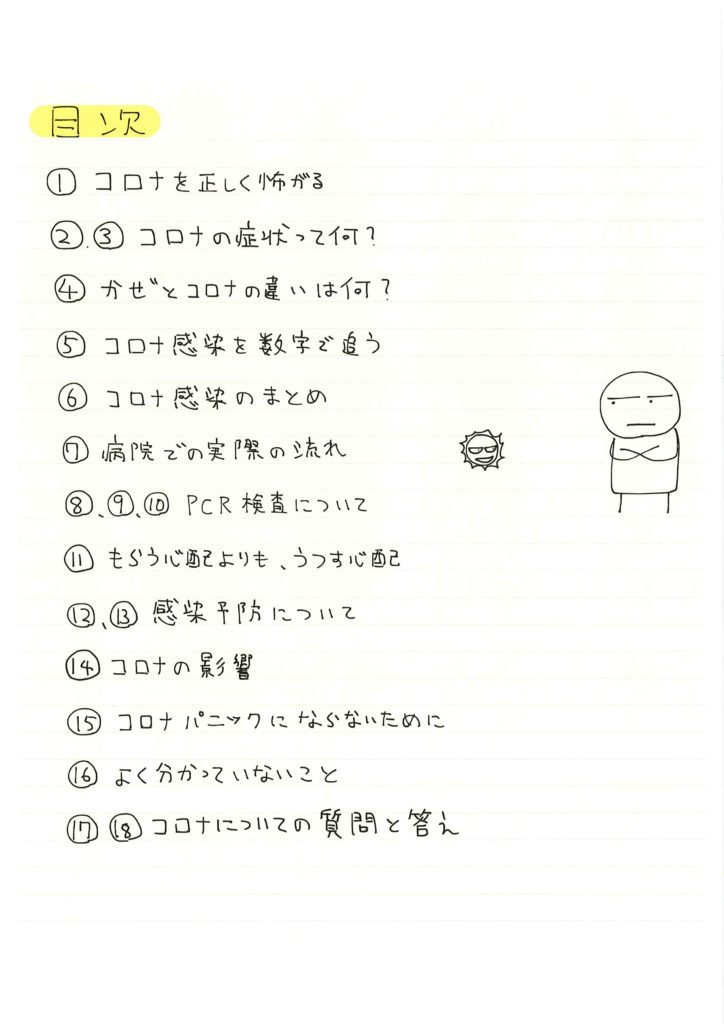 目次
① コロナを正しく怖がる
②.③ コロナの症状って何？
④ かぜとコロナの違いは何？
⑤ コロナ感染を数字で追う
⑥ コロナ感染のまとめ
⑦ 病院での実際の流れ
⑧、⑨、⑩ PCR検査について
⑪ もらう心配よりも、うつす心配
⑫、⑬ 感染予防について
⑭ コロナの影響
⑮ コロナパニックにならないために
⑯ よく分かっていないこと
⑰ ⑱ コロナについての質問と答え